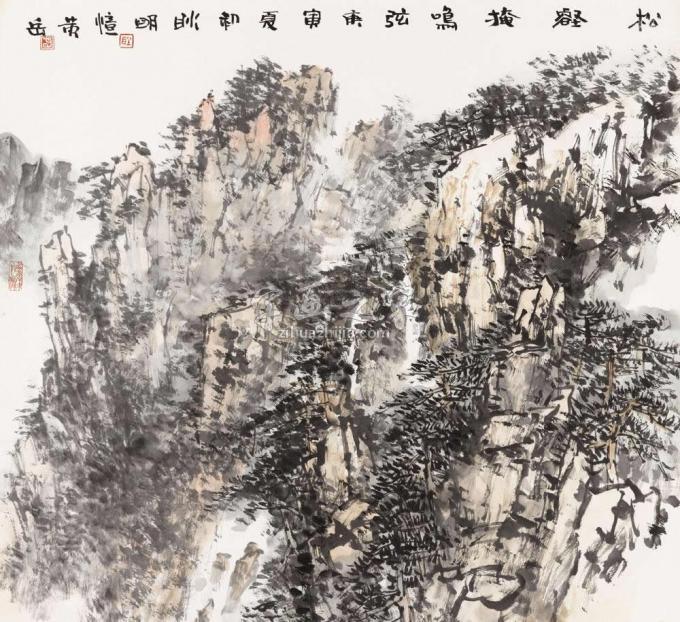 松壑掩鳴弦庚寅夏初耿明憶黄岳
zihuazhijia.com